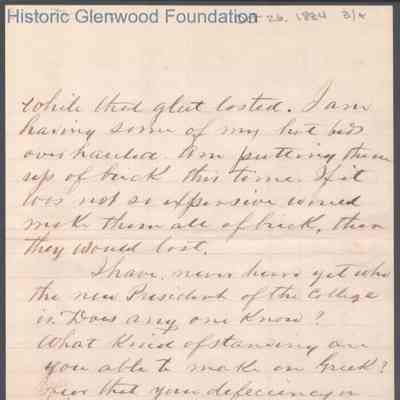 Historic Glenwood Foundation
Oct 26, 1884 3/4
while that glut lasted. I am
having some of my hot beds
overhauled. Am putting them
up of brick this time. If it
was not so expensive would
make them all of brick, then
they would last.
I have never heard yet who
the new President of the College
is. Does any one know?
What kind of standing are
you able to make on Greek?
that your deficiency in